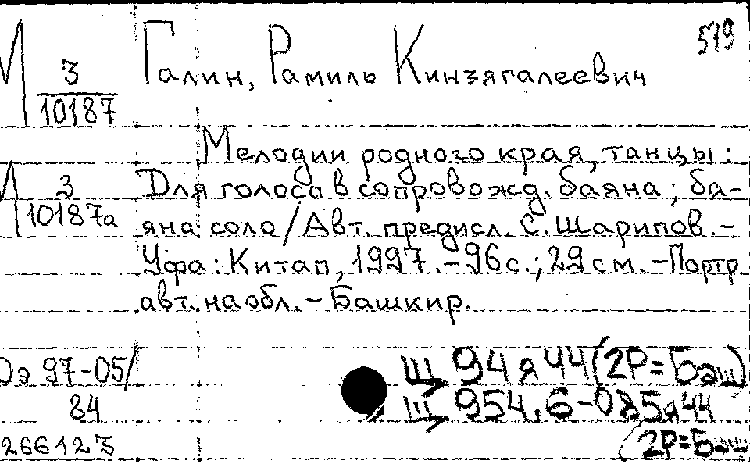 579
М 3/10187 Галин, Рамиль Кинзягалеевич
Мелодии родного края, танцы:
М 3/10187а Для голоса в сопровожд. баяна; ба-
яна соло/Авт. предисл. С. Шарипов.-
Уфа: Китап, 1997.-96с.; 29см.-Портр.
авт. на обл.-Башкир.
97-05/
84
266123
Щ 94я44(2Р=Баш)
Щ 954.6-085я44
(2Р=Баш